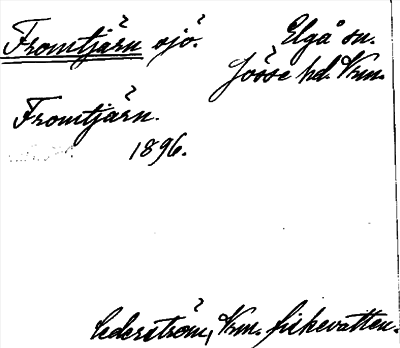 Fromtjärn sjö.
Elgå sn.
Jösse hd. Vrm.
Fromtjärn.
1896.
Cederström, Vrm. fiskevatten.